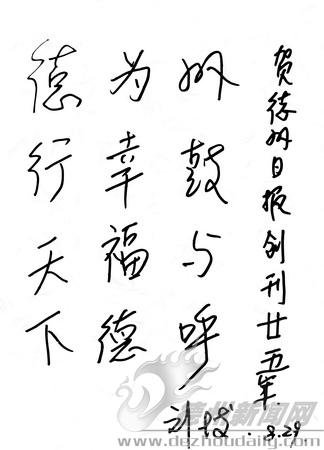 贺德州日报创刊廿五年
德行天下
为幸福德
州鼓与呼
德州新闻网
www.dezhoudaily.com